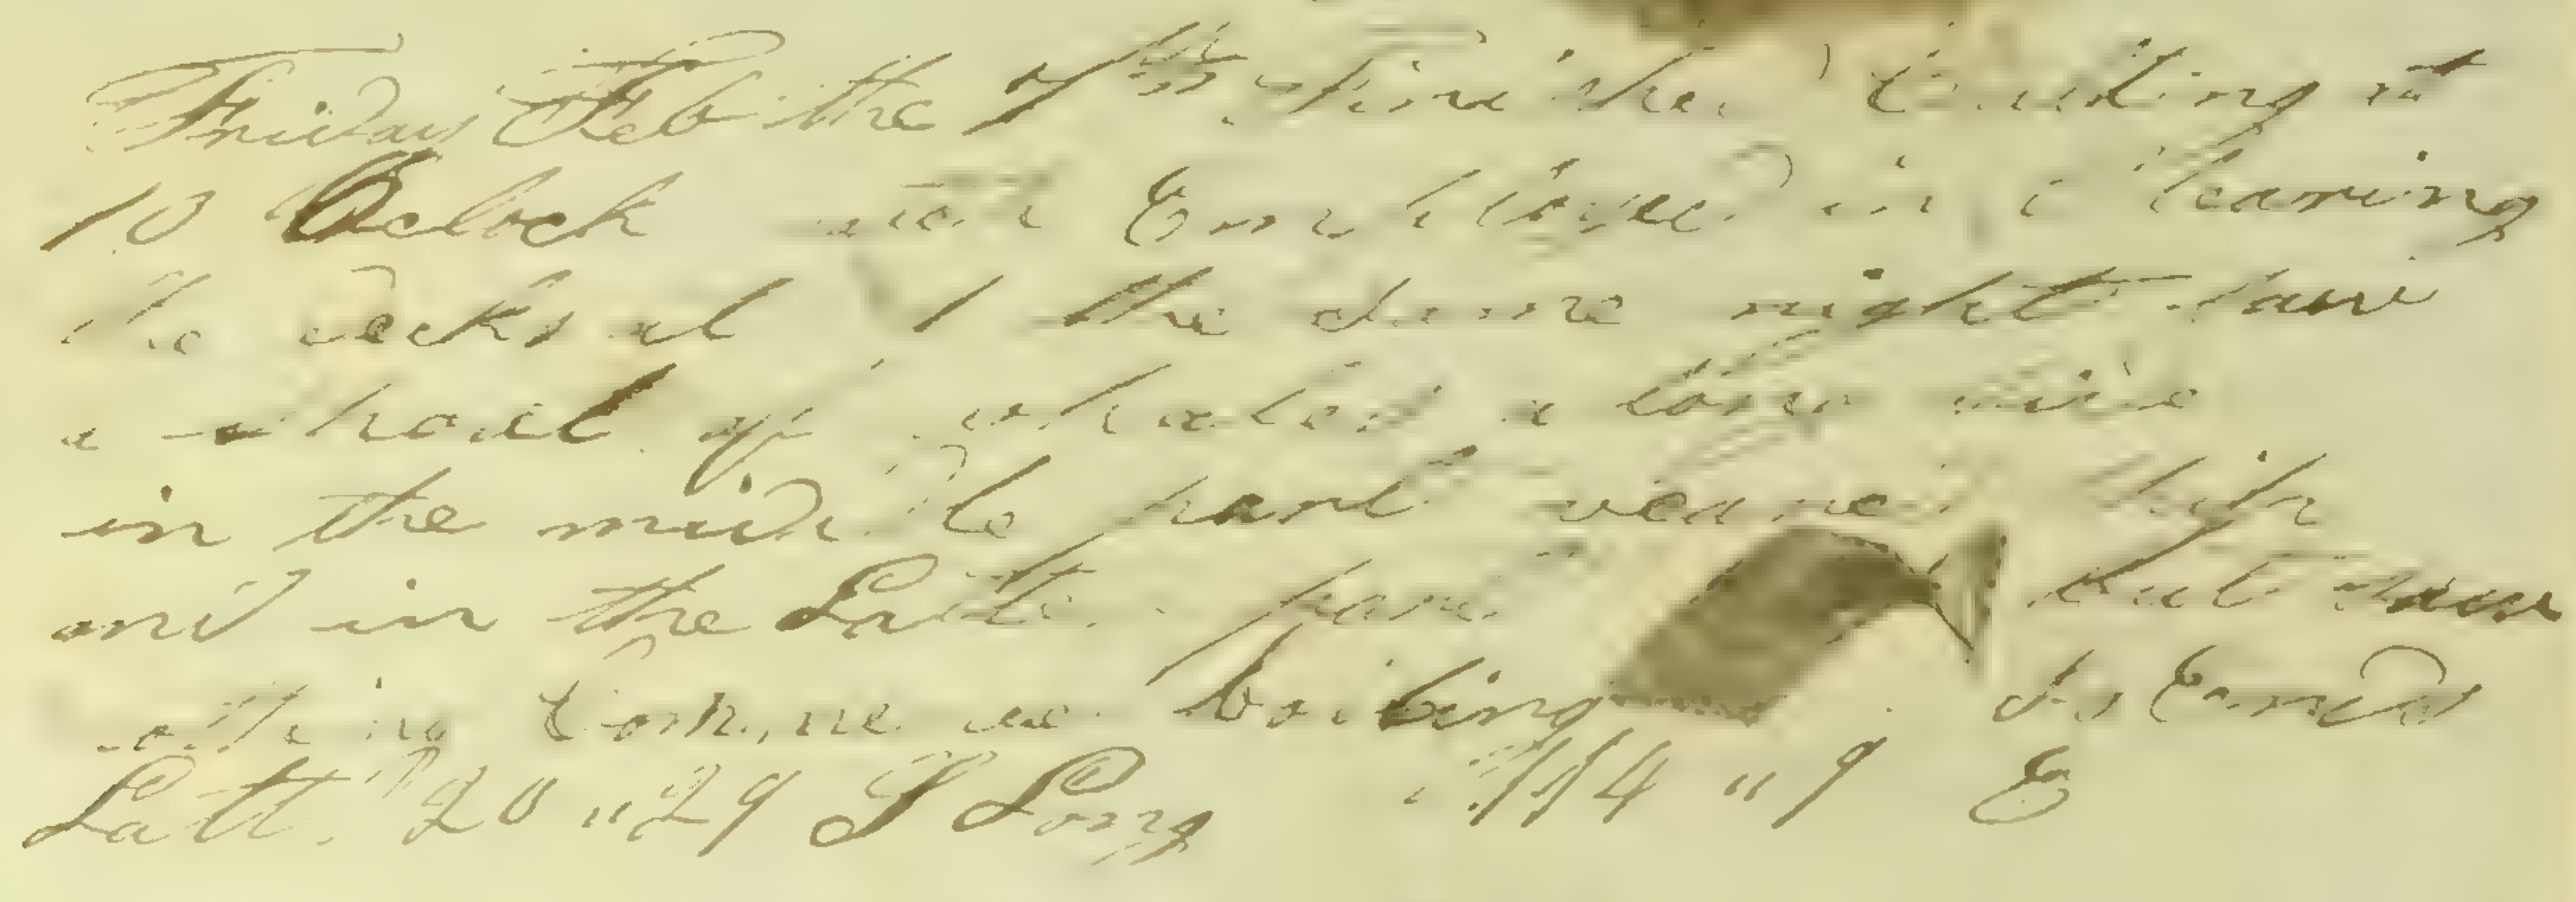 Friday Feb the 7th finished Cutting at
10 Oclock and Employed in cleaning
the decks at 1 the same night saw
a shoal of whales a long side
in the middle part veared ship
and in the Latter part but saw
nothing Comm, ne boiling So Ends
Latt. 20 " 29 S Long 114 " 9 E